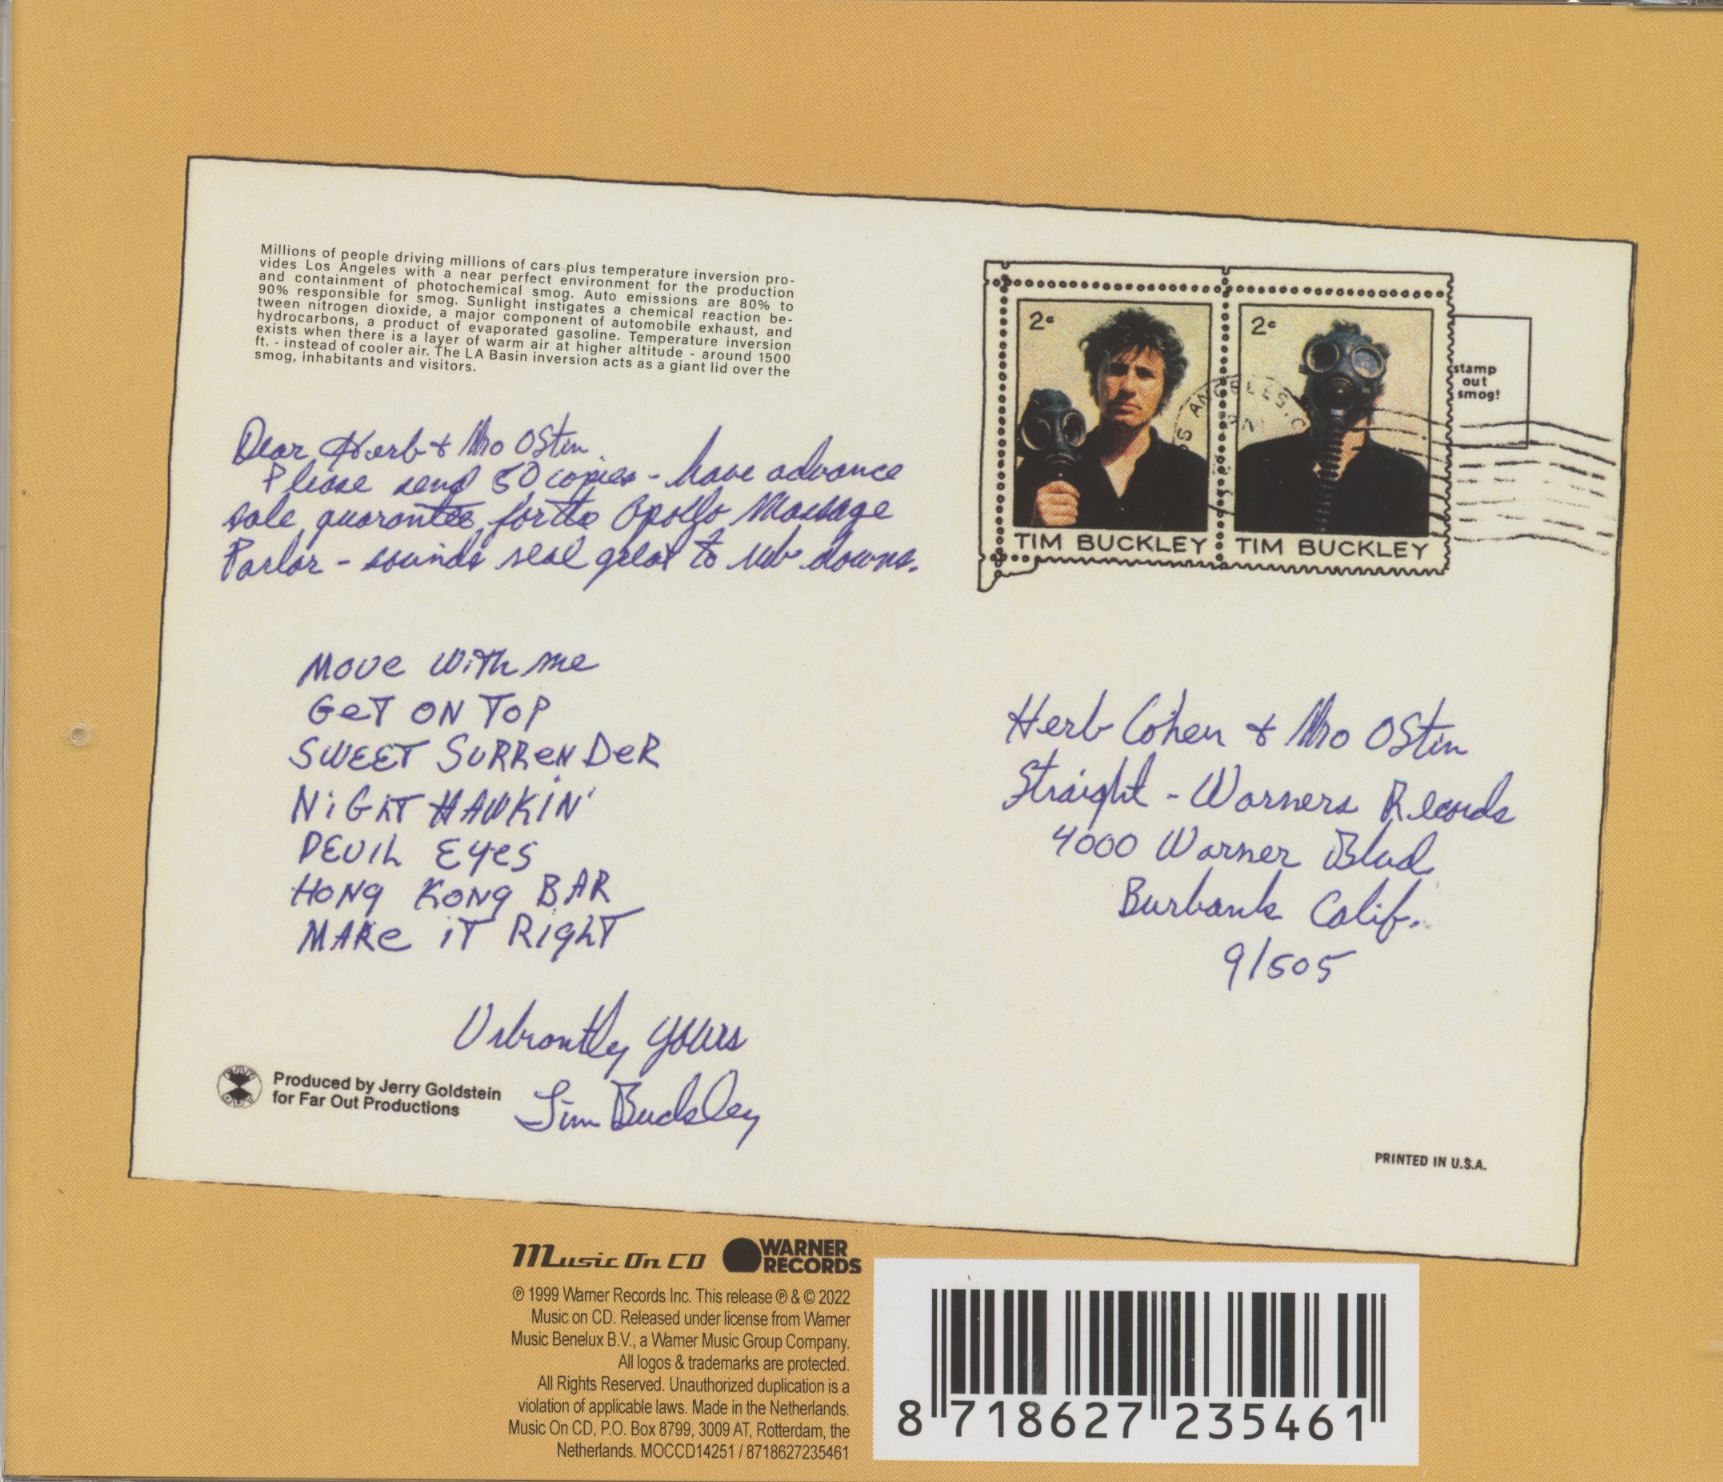 Millions of people driving millions of cars plus temperature inversion pro-
vides Los Angeles with a near perfect environment for the production
and containment of photochemical smog. Auto emissions are 80% to
90% responsible for smog. Sunlight instigates a chemical reaction be-
tween nitrogen dioxide, a major component of automobile exhaust, and
hydrocarbons, a product of evaporated gasoline. Temperature inversion
exists when there is a layer of warm air at higher altitude - around 1500
ft. - instead of cooler air. The LA Basin inversion acts as a giant lid over the
smog, inhabitants and visitors.
Dear Herb & Mo Ostin.
Please send 50 copies - have advance
sale guarantee for the Apollo Massage
Parlor - sounds real great to rub downs.
MOVE WITH ME
GET ON TOP
SWEET SURRENDER
NIGHT HAWKIN'
DEVIL EYES
HONG KONG BAR
MAKE IT RIGHT
Vibrantly yours
Tim Buckley
Produced by Jerry Goldstein
for Far Out Productions
2¢
2¢
TIM BUCKLEY
TIM BUCKLEY
stamp
out
smog!
S ANGELES, C
Herb Cohen & Mo Ostin
Straight - Warners Records
4000 Warner Blvd
Burbank Calif.
91505
PRINTED IN U.S.A.
Music On CD
WARNER
RECORDS
℗ 1999 Warner Records Inc. This release ℗ & © 2022
Music on CD. Released under license from Warner
Music Benelux B.V., a Warner Music Group Company.
All logos & trademarks are protected.
All Rights Reserved. Unauthorized duplication is a
violation of applicable laws. Made in the Netherlands.
Music On CD, P.O. Box 8799, 3009 AT, Rotterdam, the
Netherlands. MOCCD14251 / 8718627235461
8 718627 235461